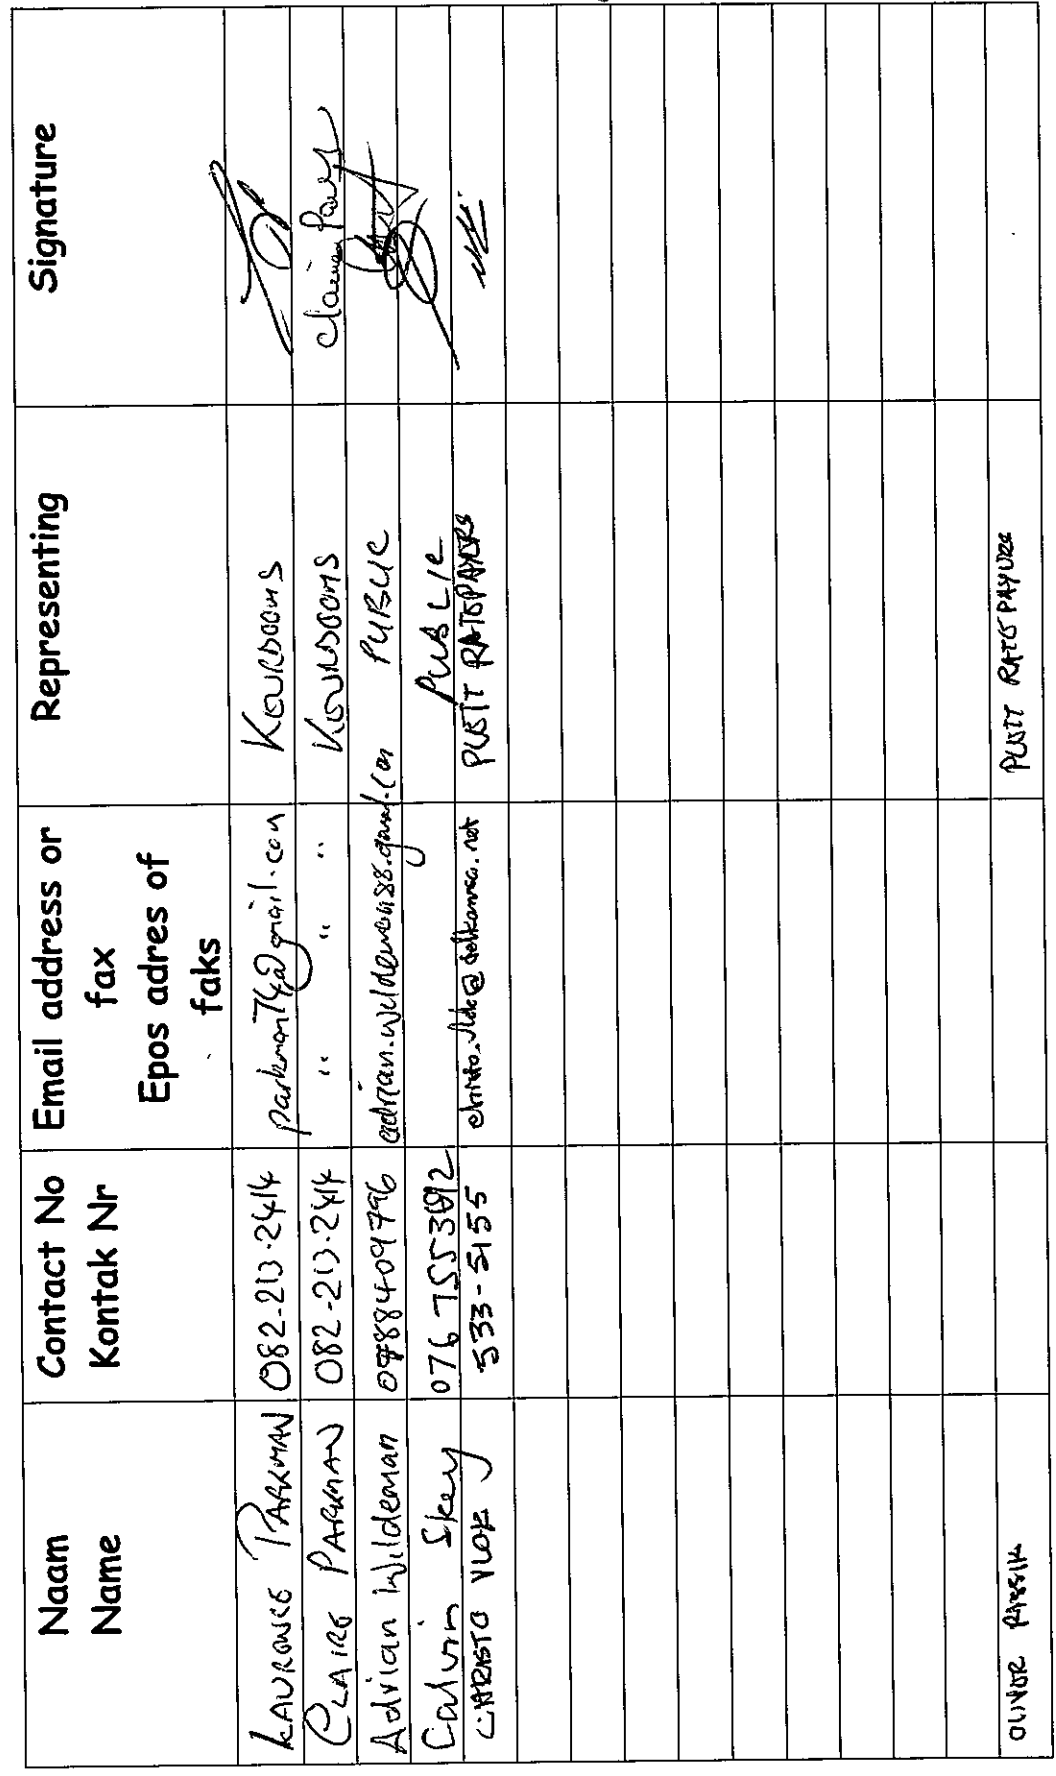 Naam
Name
Contact No
Kontak Nr
Email address or
fax
Epos adres of
faks
Representing
Signature
LAURENCE PARKMAN 082-213-2414 parkman74@gmail.com KEURBOOMS
CLAIRE PARKMAN 082-213-2414 " " " KEURBOOMS
Adrian Wildeman 0788409796 adrian.wildeman88.gmail.com PUBLIC
Calvin Skey 076 7553 PUBLIC
CHRISTO VLOK 533-5155 christo.vlok@telkomsa.net PLETT RATEPAYERS
OLIVER PLETT RATEPAYERS